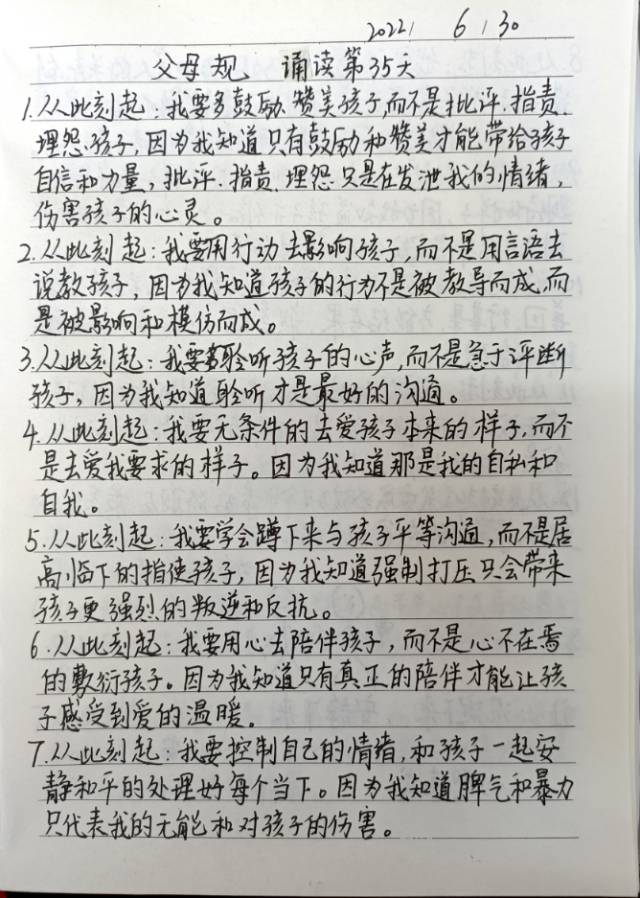 2022 6 30
父母规 诵读第35天
1.从此刻起:我要多鼓励、赞美孩子,而不是批评.指责.
埋怨.孩子,因为我知道只有鼓励和赞美才能带给孩子
自信和力量,批评.指责.埋怨只是在发泄我的情绪,
伤害孩子的心灵。
2.从此刻起:我要用行动去影响孩子,而不是用言语去
说教孩子,因为我知道孩子的行为不是被教导而成,而
是被影响和模仿而成。
3.从此刻起:我要多聆听孩子的心声,而不是急于评断
孩子,因为我知道聆听才是最好的沟通。
4.从此刻起:我要无条件的去爱孩子本来的样子,而不
是去爱我要求的样子。因为我知道那是我的自私和
自我。
5.从此刻起:我要学会蹲下来与孩子平等沟通,而不是居
高临下的指使孩子,因为我知道强制打压只会带来
孩子更强烈的叛逆和反抗。
6.从此刻起:我要用心去陪伴孩子,而不是心不在焉
的敷衍孩子。因为我知道只有真正的陪伴才能让孩
子感受到爱的温暖。
7.从此刻起:我要控制自己的情绪,和孩子一起安
静和平的处理好每个当下。因为我知道脾气和暴力
只代表我的无能和对孩子的伤害。